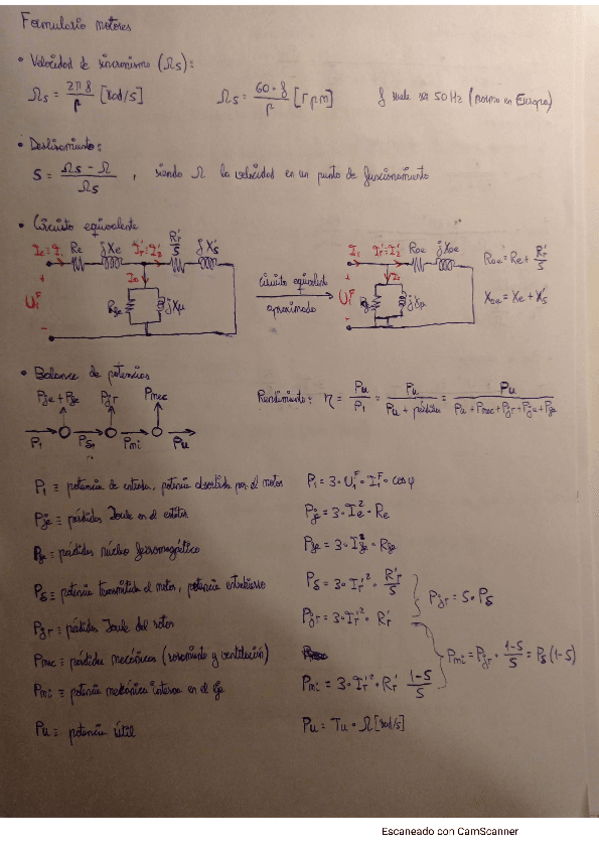 Formulario motores
• Velocidad de sincronismo (Ωs):
Ωs = 2πf/p [rad/s] Ωs = 60·f/p [rpm] f suele ser 50 Hz (norma en Europa)
• Deslizamiento:
S = (Ωs - Ω)/Ωs , siendo Ω la velocidad en un punto de funcionamiento
• Circuito equivalente
Ie=I1 Re jXe I'r=I'2 R'r/S jX's I1 I'r=I'2 Roe jXoe Roe = Re + R'r/S
+ U1F - Io Rfe jXμ circuito equivalente aproximado + U1F - Io Rfe jXμ Xoe = Xe + X's
• Balance de potencias
Pje + Pfe Pjr Pmec Rendimiento: η = Pu/P1 = Pu/(Pu + pérdidas) = Pu/(Pu+Pmec+Pjr+Pje+Pfe)
P1 Pδ Pmi Pu
P1 ≡ potencia de entrada, potencia absorbida por el motor P1 = 3·U1F·I1F·cosφ
Pje ≡ pérdidas Joule en el estátor Pje = 3·Ie²·Re
Pfe ≡ pérdidas núcleo ferromagnético Pfe = 3·Ife²·Rfe
Pδ ≡ potencia transmitida al motor, potencia entrehierro Pδ = 3·I'r²·R'r/S
Pjr = S·Pδ
Pjr ≡ pérdidas Joule del rotor Pjr = 3·I'r²·R'r
Pmec ≡ pérdidas mecánicas (rozamiento y ventilación) Pmi = Pjr·(1-S)/S = Pδ(1-S)
Pmi ≡ potencia mecánica interna en el eje Pmi = 3·I'r²·R'r (1-S)/S
Pu ≡ potencia útil Pu = Tu·Ω[rad/s]
Escaneado con CamScanner